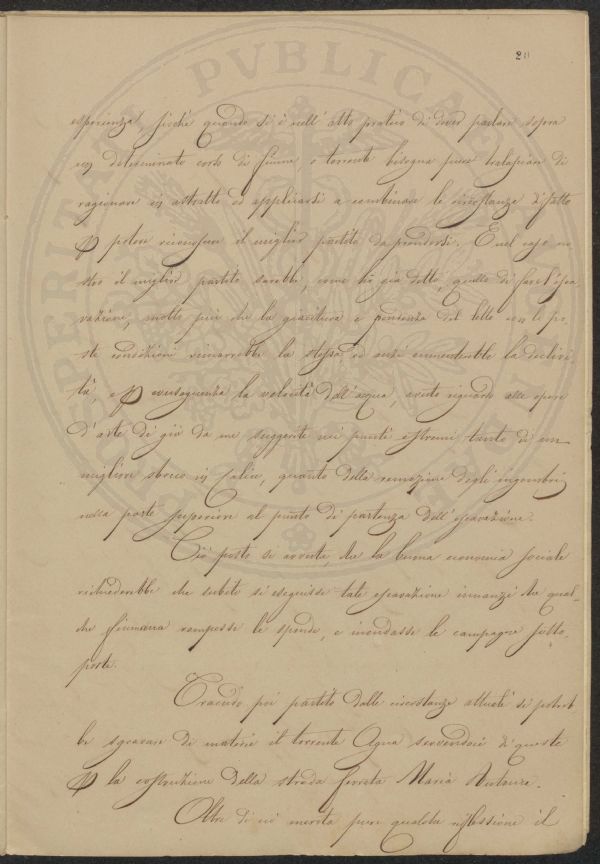 20
esperienza, fichè quando si è nell' atto pratico di dover parlare sopra
un determinato corso di fiume, o torrente bisogna pure tralasciare di
ragionare in astratto ed applicarsi a combinare le circostanze di fatto
p potere riconoscere il miglior partito da prendersi. E nel caso no-
stro il miglior partito sarebbe, come ho già detto, quello di fare l'esca
vazione, molto più che la giacitura e pendenza del letto con le po-
ste condizioni rimarrebbe la stessa ed anzi aumenterebbe la declivi
tà, e p conseguenza la velocità dell' acqua, avuto riguardo alle opere
d'arte di già da me suggerite nei punti estremi, tanto di un
migliore sbocco in, quanto della remozione degli ingombri
nella parte superiore al punto di partenza dell' escavazione.
Ciò posto si avverte, che la buona economia sociale
richiederebbe che subito si eseguisse tale escavazione innanzi che qual-
che fiumana rompesse le sponde, e inondasse le campagne sotto-
poste.
Traendo poi partito dalle circostanze attuali si potreb
be sgravare di materie il torrente servendosi di queste
p la costruzione della strada ferrata Maria Antonia.
Oltre di ciò merita pure qualche riflessione il
PUBLICA